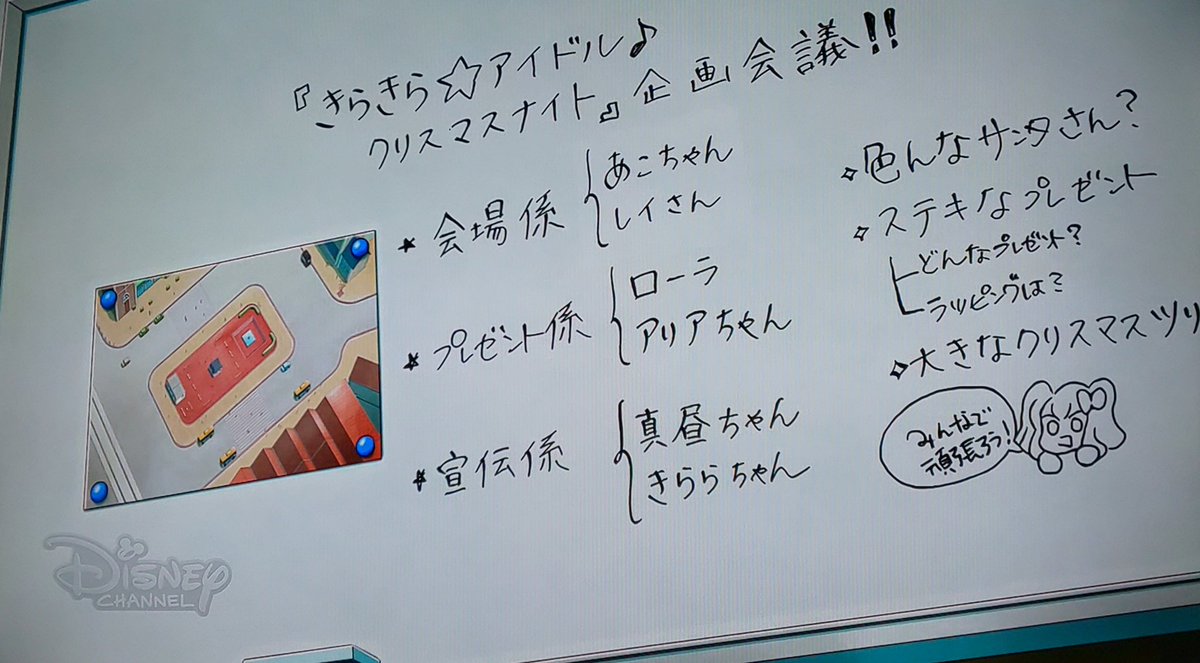 『きらきら☆アイドル♪
クリスマスナイト』企画会議!!
★会場係
あこちゃん
レイさん
★プレゼント係
ローラ
アリアちゃん
★宣伝係
真昼ちゃん
きららちゃん
✧色んなサンタさん?
✧ステキなプレゼント
どんなプレゼント?
ラッピングは?
✧大きなクリスマスツリ
みんなで
頑張ろう!
Disney
CHANNEL